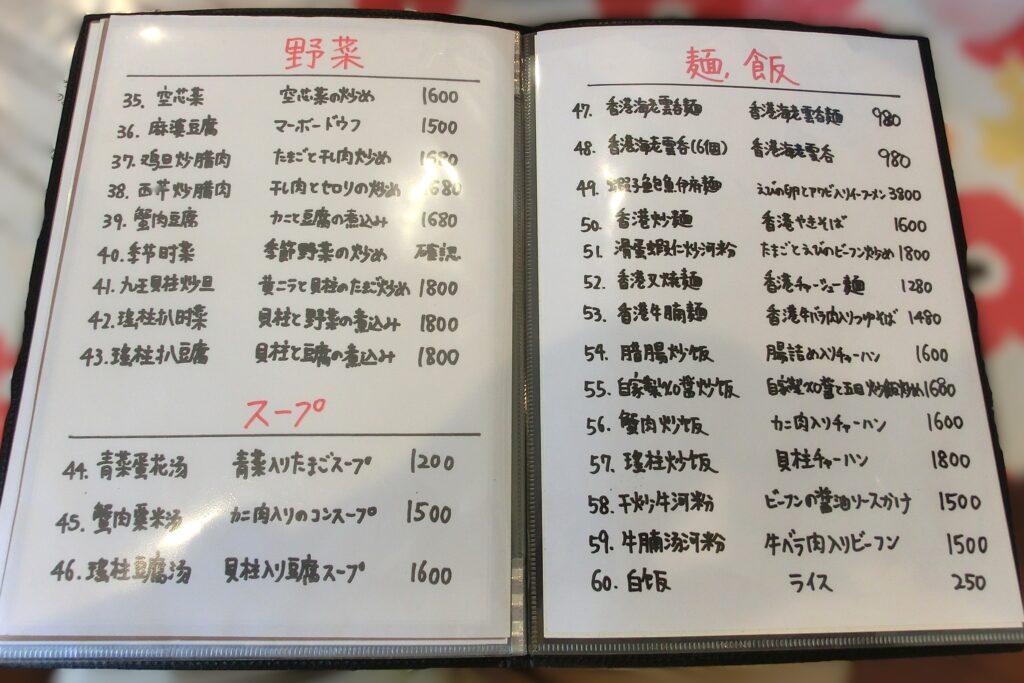 野菜
35. 空芯菜 空芯菜の炒め 1600
36. 麻婆豆腐 マーボードウフ 1500
37. 鸡旦炒腊肉 たまごと干し肉炒め 1680
38. 西芹炒腊肉 干し肉とセロリの炒め 1680
39. 蟹肉豆腐 カニと豆腐の煮込み 1680
40. 季节时菜 季節野菜の炒め 確認
41. 九王貝柱炒旦 黄ニラと貝柱のたまご炒め 1800
42. 瑤柱扒时菜 貝柱と野菜の煮込み 1800
43. 瑤柱扒豆腐 貝柱と豆腐の煮込み 1800
スープ
44. 青菜蛋花汤 青菜入りたまごスープ 1200
45. 蟹肉粟米汤 カニ肉入りのコンスープ 1500
46. 瑤柱豆腐汤 貝柱入り豆腐スープ 1600
麺, 飯
47. 香港海老雲呑麺 香港海老雲呑麺 980
48. 香港海老雲呑(6個) 香港海老雲呑 980
49. 蝦子鮑魚伊府麺 えびの卵とアワビ入りイーフーメン 3800
50. 香港炒麺 香港やきそば 1600
51. 滑蛋蝦仁炒河粉 たまごとえびのビーフン炒め 1800
52. 香港叉燒麺 香港チャーシュー麺 1280
53. 香港牛腩麺 香港牛バラ肉入りつゆそば 1480
54. 腊腸炒饭 腸詰め入りチャーハン 1600
55. 自家製XO醤炒饭 自家製XO醤と五目炒飯炒め 1680
56. 蟹肉炒饭 カニ肉入りチャーハン 1600
57. 瑤柱炒饭 貝柱チャーハン 1800
58. 干炒牛河粉 ビーフンの醤油ソースかけ 1500
59. 牛腩汤河粉 牛バラ肉入りビーフン 1500
60. 白饭 ライス 250